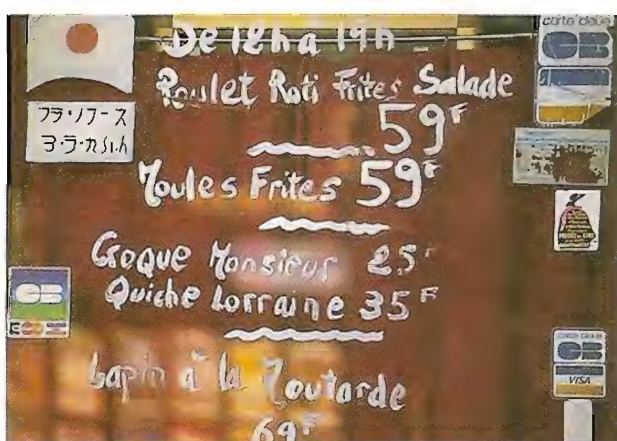 De 12h a 19h
Poulet Roti Frites Salade
59F
Moules Frites 59F
Croque Monsieur 25F
Quiche Lorraine 35F
Lapin à la Moutarde
69F
carte bleue
CB
CB
CB
VISA